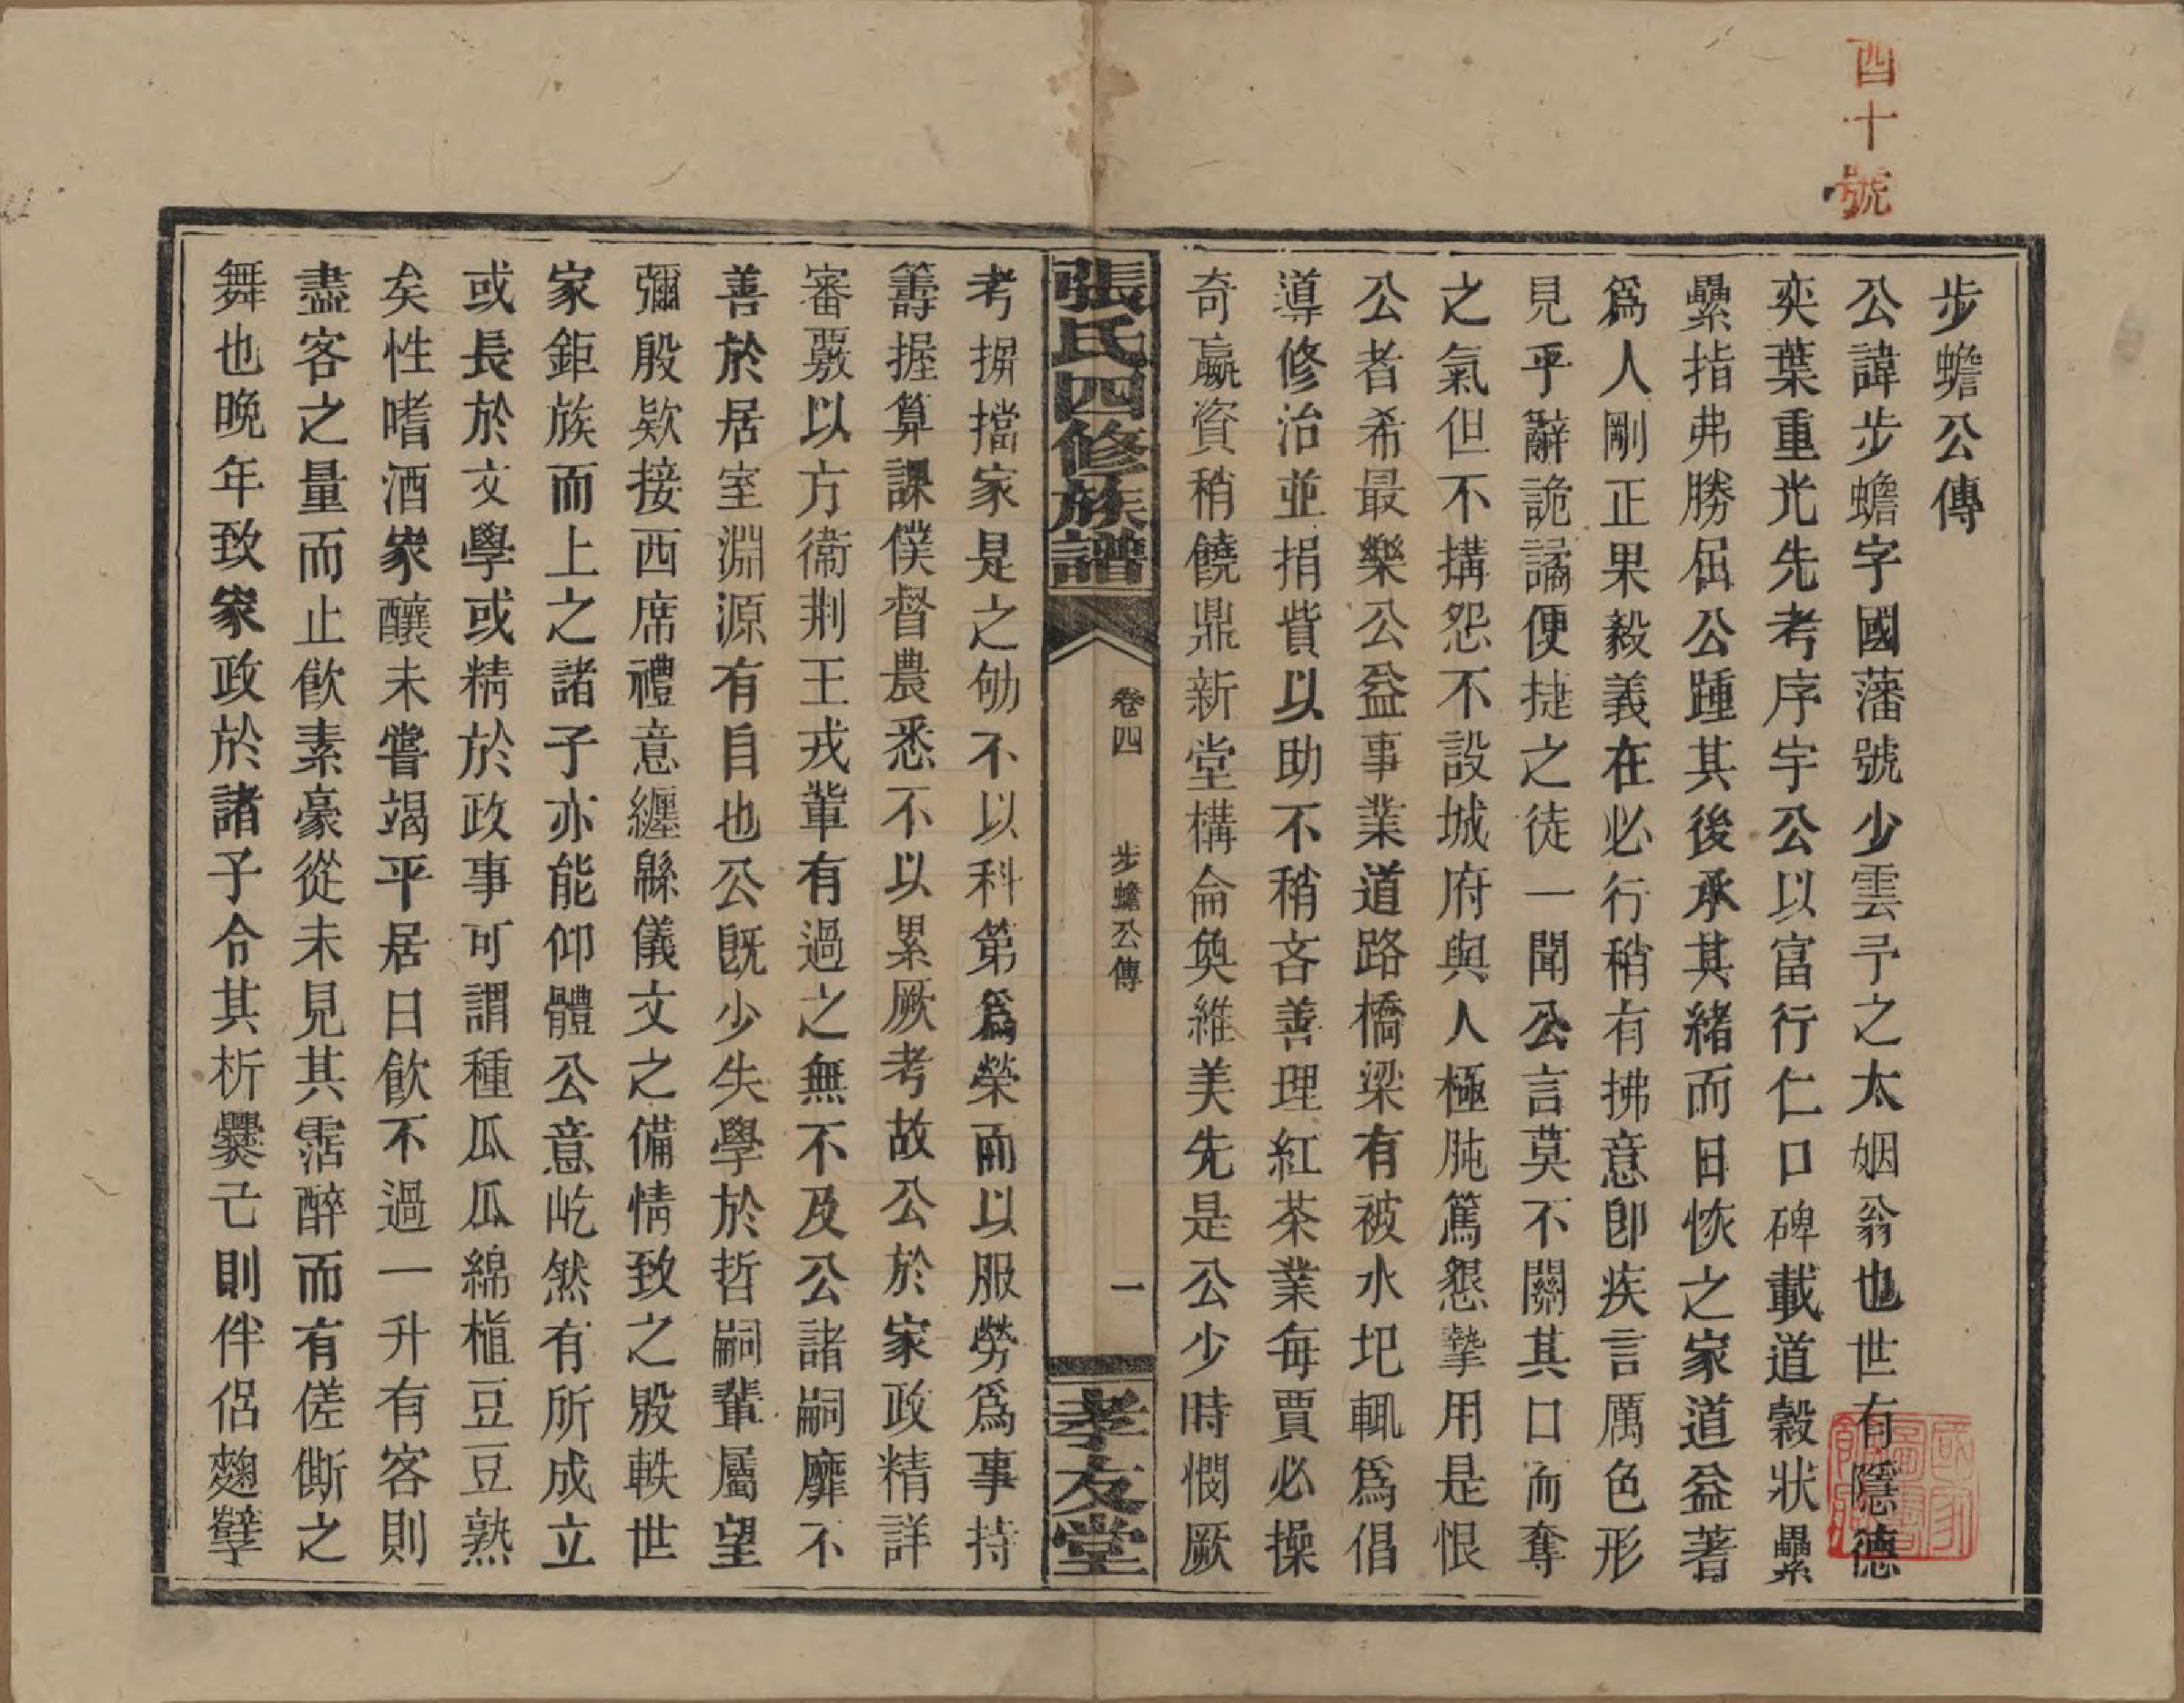 四十號
步蟾公傳
公諱步蟾字國藩號少雲予之太姻翁也世有隱德
奕葉重光先考序宇公以富行仁口碑載道穀狀纍
纍指弗勝屈公踵其後承其緒而日恢之家道益著
爲人剛正果毅義在必行稍有拂意卽疾言厲色形
見乎辭詭譎便捷之徒一聞公言莫不關其口而奪
之氣但不搆怨不設城府與人極肫篤懇摯用是恨
公者希最樂公益事業道路橋梁有被水圯輒爲倡
導修治並捐貲以助不稍吝善理紅茶業每賈必操
奇贏資稍饒鼎新堂構侖奐維美先是公少時憫厥
張氏四修族譜
卷四
步蟾公傳
一
孝友堂
考摒擋家是之劬不以科第爲榮而以服勞爲事持
籌握算課僕督農悉不以累厥考故公於家政精詳
審覈以方衞荆王戎輩有過之無不及公諸嗣靡不
善於居室淵源有自也公既少失學於哲嗣輩屬望
彌殷欵接西席禮意纏緜儀文之備情致之殷軼世
家鉅族而上之諸子亦能仰體公意屹然有所成立
或長於文學或精於政事可謂種瓜瓜綿植豆豆熟
矣性嗜酒家釀未嘗竭平居日飮不過一升有客則
盡客之量而止飮素豪從未見其霑醉而有傞傞之
舞也晚年致家政於諸子令其析爨亡則伴侶麴櫱
國家圖書館藏